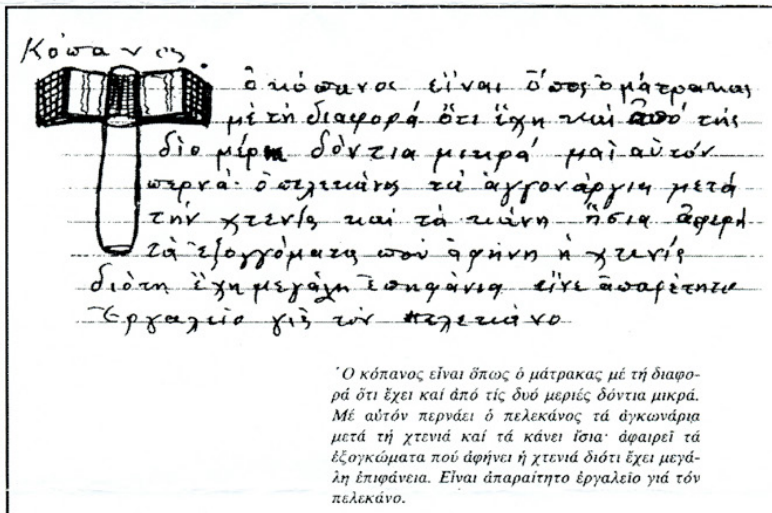 Κόπανος.
ὁ κόπανος εἶναι ὅπος ὁ μάτρακας
μέ τή διαφορά ὅτι ἔχη καί ἀπό τής
δίο μέρη δόντια μικρά μαί αὐτόν
περνά· ὁ πελεκάνος τά ἀγγονάργια μετά
τήν χτενιά καί τά κάνη ἤσια ἀφερή
τά ἐξογγόματα πού ἀφήνη ἡ χτενιά
διότη ἔχη μεγάλη ἐπηφάνια εἶνε ἀπαρέτητο
Ἐργαλείο γιά τόν πελεκάνο
Ὁ κόπανος εἶναι ὅπως ὁ μάτρακας μέ τή διαφο-
ρά ὅτι ἔχει καί ἀπό τίς δυό μεριές δόντια μικρά.
Μέ αὐτόν περνάει ὁ πελεκάνος τά ἀγκωνάρια
μετά τή χτενιά καί τά κάνει ἴσια· ἀφαιρεῖ τά
ἐξογκώματα πού ἀφήνει ἡ χτενιά διότι ἔχει μεγά-
λη ἐπιφάνεια. Εἶναι ἀπαραίτητο ἐργαλεῖο γιά τόν
πελεκάνο.